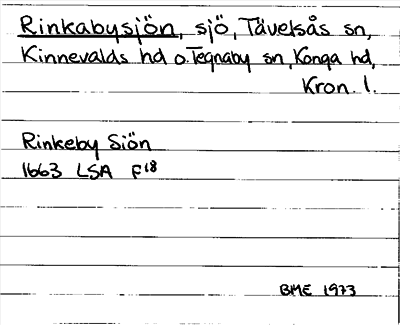 Rinkabysjön, sjö, Tävelsås sn,
Kinnevalds hd o. Tegnaby sn, Konga hd,
Kron. l.
Rinkeby Siön
1663 LSA F18
BME 1973